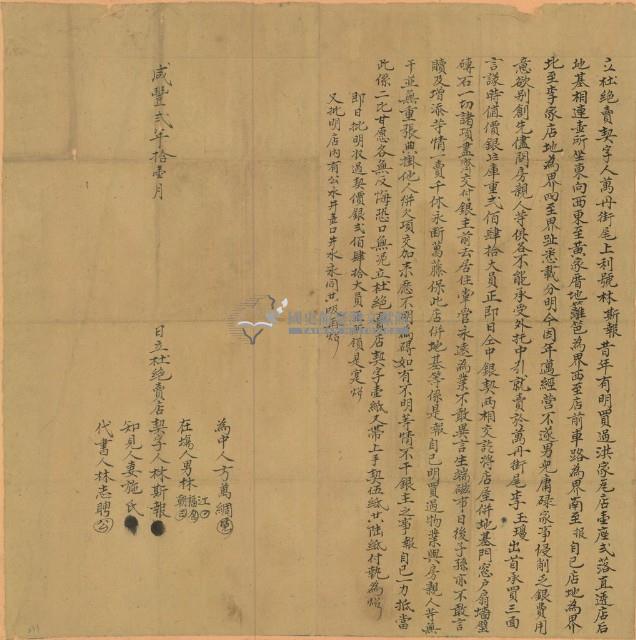 立杜絕賣契字人萬丹街尾上利號林斯報昔年有明買過洪家瓦店壹座弍落直透店后
地基相連壹所坐東向西東至黃家厝地籬笆為界西至店前車路為界南至報自己店地為界
北至李家店地為界四至界趾悉載分明今因年邁經營不遂男兒庸碌家事侵削乏銀費用
意欲別創先儘問房親人等俱各不能承受外托中引就賣於萬丹街尾李王璦出首承買三面
言議時值價銀庫重弍佰肆拾大員正即日仝中銀契兩相交訖將店屋併地基門窓戶扇墻壁
磚石一切諸項盡齊交付銀主前去居住掌管永遠為業不敢異言生端滋事日後子孫亦不敢言
贖及增添等情一賣千休永斷葛藤保此店併地基等係是報自己明買過物業與房親人等無
干並無重張典掛他人併欠項交加來歷不明為碍如有不明等情不干銀主之事報自己一力抵當
此係二比甘愿各無反悔恐口無憑立杜絕賣店契字壹紙又帶上手契伍紙共陸紙付執為炤
即日批明收過契價銀弍佰肆拾大員完領是實炤
又批明店內有公水井壹口井水永同汲炤
為中人方萬綢
在塲人男林江
福
朝
知見人妻施氏
日立杜絕賣店契字人林斯報
代書人林志聘
咸豐弍年拾壹月
國史館臺灣文獻館
TAIWAN HISTORICA